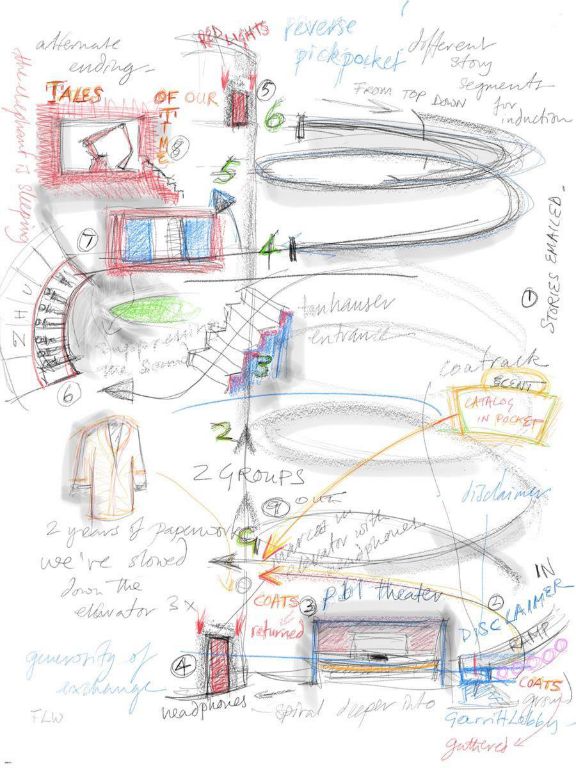 alternate
ending
RED LIGHTS
reverse
pickpocket
different
story
segments
for
induction
FROM TOP DOWN
TALES
OF OUR
TIME
the elephant is sleeping
5
6
8
5
7
4
STORIES EMAILED
1
tanhauser
entrance
Z H U
6
3
coatrack
SCENT
CATALOG
IN POCKET
2
2 GROUPS
disclaimer
9
OUT
elevator with
headphones
2 years of paperwork
we've slowed
down the
elevator 3x
IN
DISCLAIMER
RAMP
2
COATS
returned
3
p.b1 theater
4
generosity of
exchange
headphones
spiral deeper into
COATS
group
Gerritt Lobby
gathered
FLW